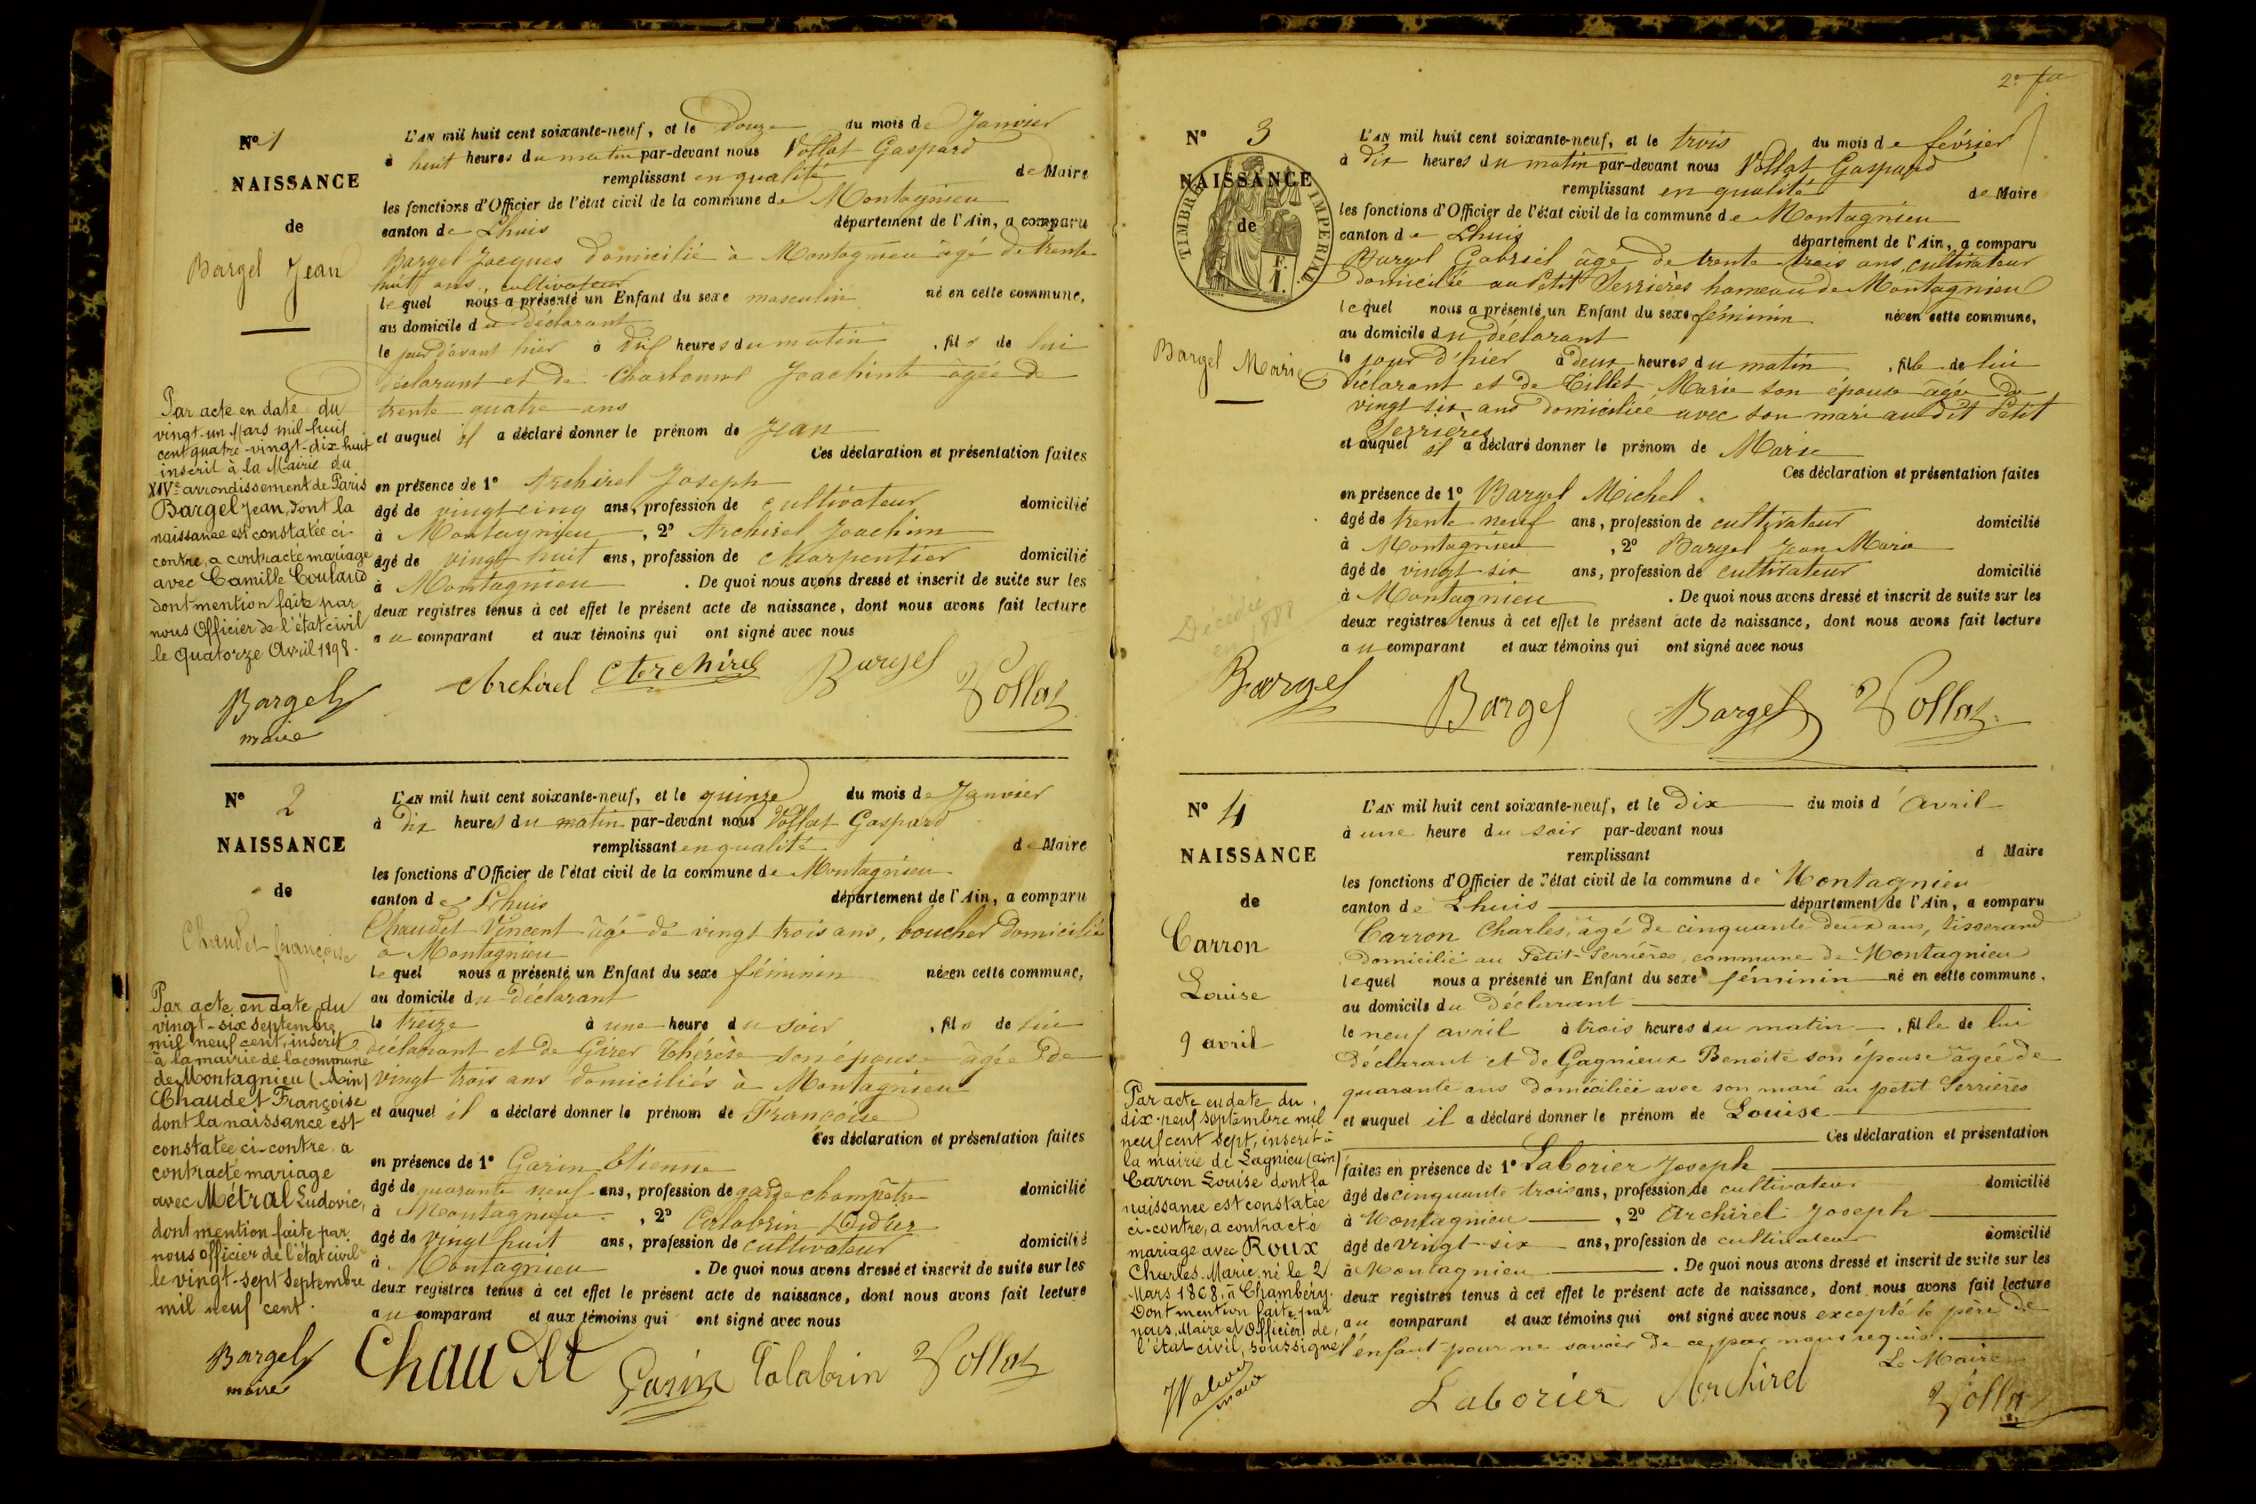 Nº 1
NAISSANCE
de
Bargel Jean
L'AN mil huit cent soixante-neuf, et le Douze du mois de Janvier
à huit heures du matin par-devant nous Vollat Gaspard
remplissant en qualité de Maire
les fonctions d'Officier de l'état civil de la commune de Montagnieu
canton de Lhuis département de l'Ain, a comparu
Bargel Jacques domicilié à Montagnieu âgé de trente
huit ans, cultivateur
lequel nous a présenté un Enfant du sexe masculin né en cette commune,
au domicile du déclarant
le jour d'avant hier à dix heures du matin, fils de lui
déclarant et de Charbonnel Joachinte âgée de
trente quatre ans
et auquel il a déclaré donner le prénom de Jean
Ces déclaration et présentation faites
en présence de 1º Archirel Joseph
âgé de vingt cinq ans, profession de cultivateur domicilié
à Montagnieu, 2º Archirel Joachim
âgé de vingt huit ans, profession de charpentier domicilié
à Montagnieu. De quoi nous avons dressé et inscrit de suite sur les
deux registres tenus à cet effet le présent acte de naissance, dont nous avons fait lecture
au comparant et aux témoins qui ont signé avec nous
Archirel Archirel Bargel Vollat
Par acte en date du
vingt-un Mars mil huit
cent quatre-vingt-dix huit
inscrit à la Mairie du
XIVe arrondissement de Paris
Bargel Jean, dont la
naissance est constatée ci-
contre, a contracté mariage
avec Camille Coulard
dont mention faite par
nous Officier de l'état civil
le quatorze Avril 1898.
Bargel
maire
Nº 2
NAISSANCE
de
Chaudet françoise
L'AN mil huit cent soixante-neuf, et le quinze du mois de Janvier
à Dix heures du matin par-devant nous Vollat Gaspard
remplissant en qualité de Maire
les fonctions d'Officier de l'état civil de la commune de Montagnieu
canton de Lhuis département de l'Ain, a comparu
Chaudet Vincent âgé de vingt trois ans, boucher domicilié
à Montagnieu
lequel nous a présenté un Enfant du sexe féminin née en cette commune,
au domicile du déclarant
le treize à une heure du soir, fils de lui
déclarant et de Girer Thérèse son épouse âgée de
vingt trois ans domiciliés à Montagnieu
et auquel il a déclaré donner le prénom de Françoise
Ces déclaration et présentation faites
en présence de 1º Garin Etienne
âgé de quarante neuf ans, profession de garde champêtre domicilié
à Montagnieu, 2º Calabrin Didier
âgé de vingt huit ans, profession de cultivateur domicilié
à Montagnieu. De quoi nous avons dressé et inscrit de suite sur les
deux registres tenus à cet effet le présent acte de naissance, dont nous avons fait lecture
au comparant et aux témoins qui ont signé avec nous
Chaudet Garin Calabrin Vollat
Par acte en date du
vingt-six septembre
mil neuf cent, inscrit
à la mairie de la commune
de Montagnieu (Ain)
Chaudet Françoise
dont la naissance est
constatée ci-contre a
contracté mariage
avec Métral Ludovic,
dont mention faite par
nous officier de l'état civil
le vingt-sept septembre
mil neuf cent.
Bargel
maire
2e
Nº 3
NAISSANCE
de
TIMBRE IMPERIAL
Bargel Marie
L'AN mil huit cent soixante-neuf, et le trois du mois de février
à dix heures du matin par-devant nous Vollat Gaspard
remplissant en qualité de Maire
les fonctions d'Officier de l'état civil de la commune de Montagnieu
canton de Lhuis département de l'Ain, a comparu
Bargel Gabriel âgé de trente trois ans cultivateur
domicilié au Petit Serrières hameau de Montagnieu
lequel nous a présenté un Enfant du sexe féminin née en cette commune,
au domicile du déclarant
le jour d'hier à deux heures du matin, fille de lui
déclarant et de Tillet Marie son épouse âgée de
vingt six ans domiciliée avec son mari au dit Petit
Serrieres
et auquel il a déclaré donner le prénom de Marie
Ces déclaration et présentation faites
en présence de 1º Bargel Michel.
âgé de trente neuf ans, profession de cultivateur domicilié
à Montagnieu, 2º Bargel Jean Marie
âgé de vingt six ans, profession de cultivateur domicilié
à Montagnieu. De quoi nous avons dressé et inscrit de suite sur les
deux registres tenus à cet effet le présent acte de naissance, dont nous avons fait lecture
au comparant et aux témoins qui ont signé avec nous
Décédée
en 1888
Bargel Bargel Bargel Vollat
Nº 4
NAISSANCE
de
Carron
Louise
9 avril
L'AN mil huit cent soixante-neuf, et le Dix du mois d'Avril
à une heure du soir par-devant nous
remplissant d Maire
les fonctions d'Officier de l'état civil de la commune de Montagnieu
canton de Lhuis département de l'Ain, a comparu
Carron Charles, âgé de cinquante deux ans, tisserand
Domicilié au Petit-Serrières, commune de Montagnieu
lequel nous a présenté un Enfant du sexe féminin né en cette commune.
au domicile du Déclarant
le neuf avril à trois heures du matin, fille de lui
Déclarant et de Gagnieux Benoite son épouse âgée de
quarante ans domiciliée avec son mari au petit Serrières
et auquel il a déclaré donner le prénom de Louise
Ces déclaration et présentation
faites en présence de 1º Laborier Joseph
âgé de cinquante trois ans, profession de cultivateur domicilié
à Montagnieu, 2º Archirel Joseph
âgé de vingt-six ans, profession de cultivateur domicilié
à Montagnieu. De quoi nous avons dressé et inscrit de suite sur les
deux registres tenus à cet effet le présent acte de naissance, dont nous avons fait lecture
au comparant et aux témoins qui ont signé avec nous excepté le père de
l'enfant pour ne savoir de ce par nous requis.
Le Maire
Laborier Archirel Vollat
Par acte en date du
dix-neuf septembre mil
neuf cent sept, inscrit à
la mairie de Lagnieu (ain)
Carron Louise dont la
naissance est constatée
ci-contre, a contracté
mariage avec Roux
Charles-Marie, né le 2
Mars 1868, à Chambéry.
Dont mention faite par
nous, Maire et Officier de
l'état civil, soussigné
maire